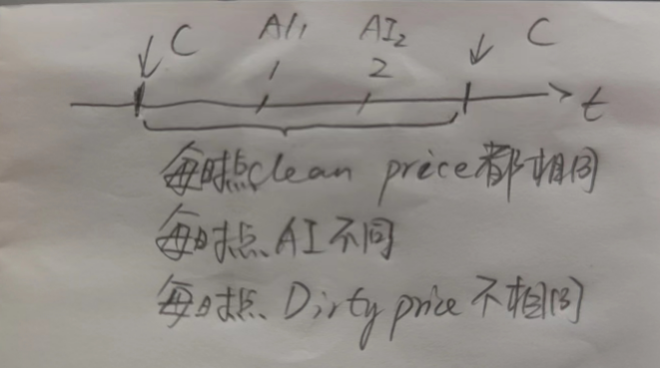 C AI₁ AI₂ C
1 2
t
每时点clean price都相同
每时点AI不同
每时点Dirty price不相同